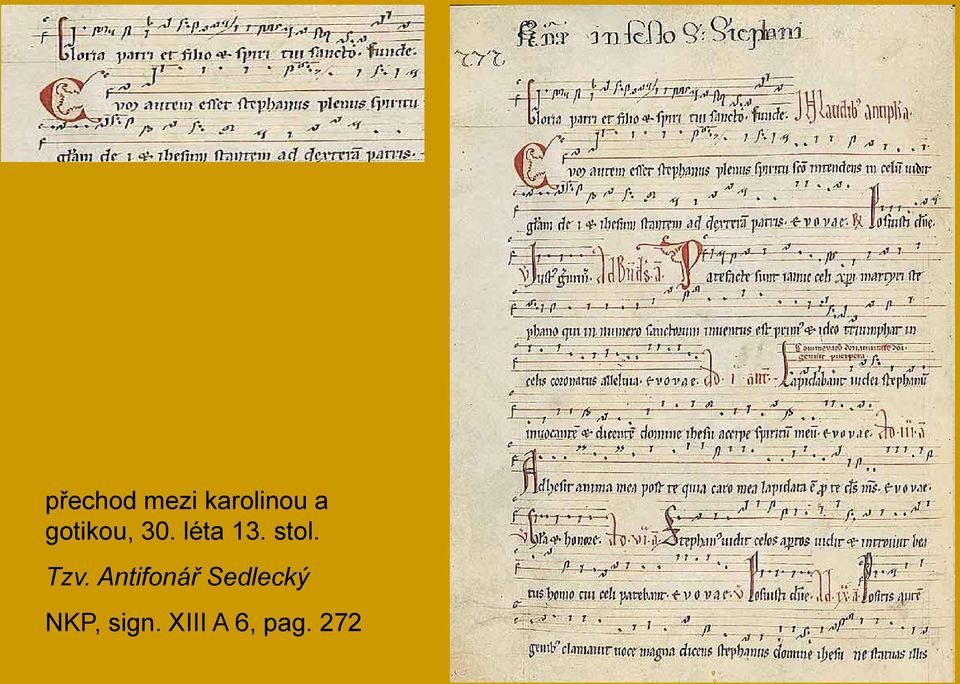 Gloria patri et filio & spiri tui sancto. funde.
vo autem esset stephanus plenus spiritu
glam de i & ihesum stantem ad dexterā patris.
in festo S: Stephani
272
Gloria patri et filio & spiri tui sancto. funde. laudib antipha.
vo autem esset stephanus plenus spiritu scō intendens in celū uidit
glam de i & ihesum stantem ad dexterā patris. e v o v a e. osuisti dn̄e.
Patefacte sunt ianue celi xp̄i martyri ste
phano qui in numero sanctorum inuentus est prim & ideo triumphat in
celis coronatus alleluia. e v o v a e. ad. i ant. Lapidabant iudei stephanū
inuocantē & dicentē domine ihesu accipe spiritū meū. e v o v a e. ad. iii. a
Adhesit anima mea post te quia caro mea lapidata ē p te ds ms. e v o v a e.
& honore. ad. vi. a. Stephan uidit celos aptos uidit & introiuit bea
tus homo cui celi patebant. e v o v a e. osuisti dn̄e. ad. ix. a ositis autē
genib clamauit uoce magna dicens stephanus domine ihesu ne statuas illis
přechod mezi karolinou a
gotikou, 30. léta 13. stol.
Tzv. Antifonář Sedlecký
NKP, sign. XIII A 6, pag. 272